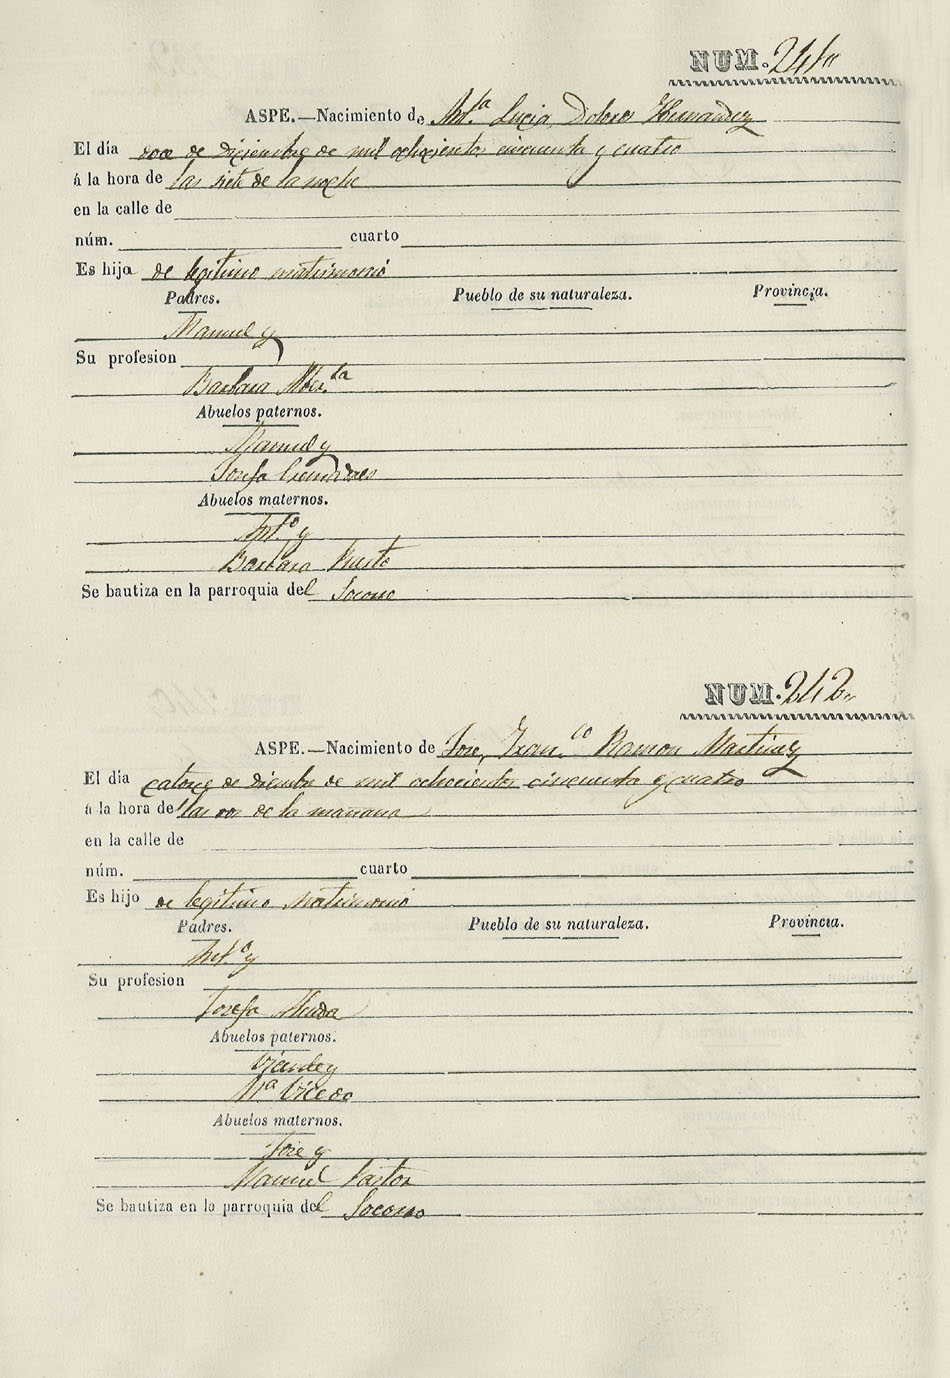 NUM. 241"
ASPE.—Nacimiento de Ant.ª Lucia Dolores Hernandez
El día doce de Diciembre de mil ochocientos cincuenta y cuatro
á la hora de las siete de la noche
en la calle de
núm. cuarto
Es hija de legitimo matrimonio
Padres. Pueblo de su naturaleza. Provincia.
Manuel y
Su profesion
Barbara
Abuelos paternos.
Manuel y
Josefa
Abuelos maternos.
Ant.º y
Barbara Puerto
Se bautiza en la parroquia del Socorro
NUM. 242"
ASPE.—Nacimiento de Jose, Fran.co Ramon Martinez
El día catorce de Diciembre de mil ochocientos cincuenta y cuatro
á la hora de las dos de la mañana
en la calle de
núm. cuarto
Es hijo de legitimo matrimonio
Padres. Pueblo de su naturaleza. Provincia.
Ant.º y
Su profesion
Josefa
Abuelos paternos.
Vicente y
M.ª Vicedo
Abuelos maternos.
Jose y
Manuel Pastor
Se bautiza en la parroquia del Socorro